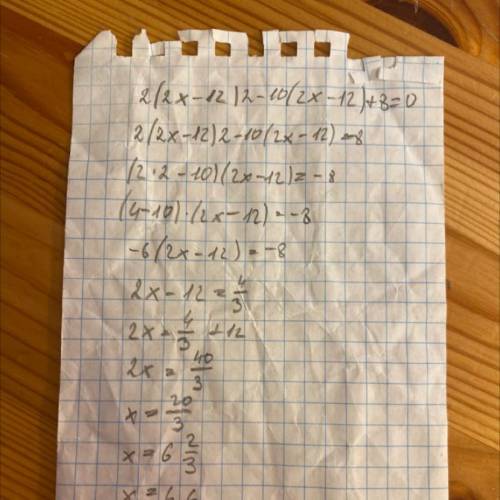 2(2x-12)2-10(2x-12)+8=0
2(2x-12)2-10(2x-12)=-8
(2·2-10)(2x-12)=-8
(4-10)·(2x-12)=-8
-6(2x-12)=-8
2x-12=4/3
2x=4/3+12
2x=40/3
x=20/3
x=6 2/3